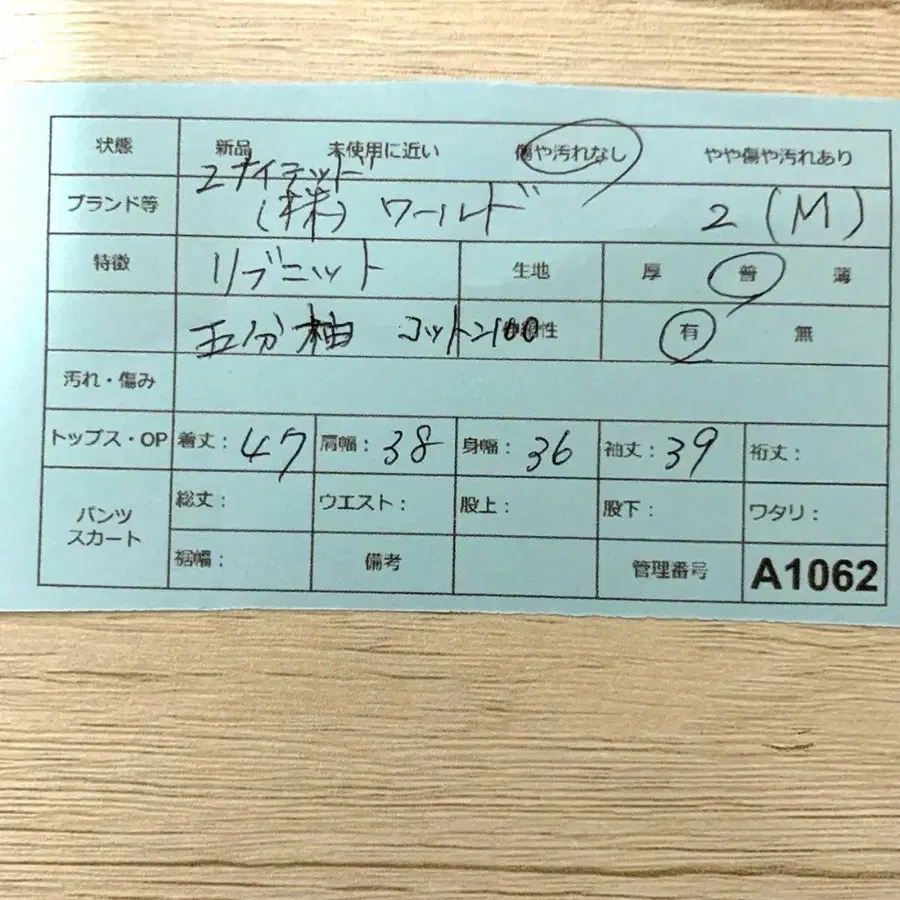 状態 新品 未使用に近い 傷や汚れなし やや傷や汚れあり
ユナイテッド
ブランド等 (株)ワールド 2(M)
特徴 リブニット 生地 厚 普 薄
五分袖 コットン100 伸縮性 有 無
汚れ・傷み
トップス・OP 着丈:47 肩幅:38 身幅:36 袖丈:39 裄丈:
パンツ スカート 総丈: ウエスト: 股上: 股下: ワタリ:
裾幅: 備考 管理番号 A1062